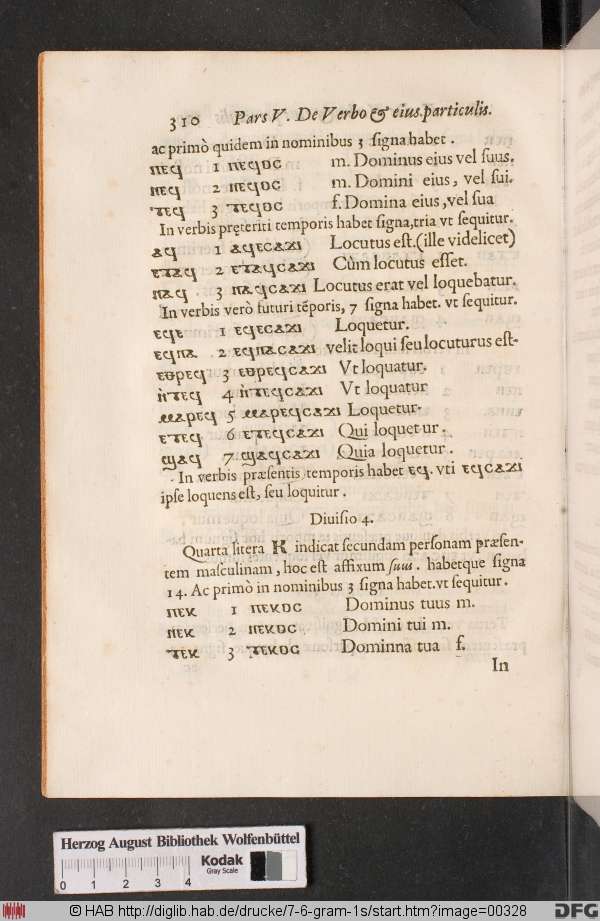 310 Pars V. De Verbo & eius particulis.
ac primò quidem in nominibus 3 signa habet .
ⲡⲉϥ 1 ⲡⲉϥⲟⲥ m. Dominus eius vel suus.
ⲛⲉϥ 2 ⲛⲉϥⲟⲥ m. Domini eius, vel sui.
ⲧⲉϥ 3 ⲧⲉϥⲟⲥ f. Domina eius, vel sua
In verbis pręteriti temporis habet signa, tria vt sequitur.
ⲁϥ 1 ⲁϥⲉⲥⲁϫⲓ Locutus est. (ille videlicet)
ⲉⲧⲁϥ 2 ⲉⲧⲁϥⲥⲁϫⲓ Cùm locutus esset.
ⲛⲁϥ 3 ⲛⲁϥⲥⲁϫⲓ Locutus erat vel loquebatur.
In verbis verò futuri tẽporis, 7 signa habet. vt sequitur.
ⲉϥⲉ 1 ⲉϥⲉⲥⲁϫⲓ Loquetur.
ⲉϥⲛⲁ 2 ⲉϥⲛⲁⲥⲁϫⲓ velit loqui seu locuturus est.
ⲉⲑⲣⲉϥ 3 ⲉⲑⲣⲉϥⲥⲁϫⲓ Vt loquatur.
ⲛ̀ⲧⲉϥ 4 ⲛ̀ⲧⲉϥⲥⲁϫⲓ Vt loquatur
ⲙⲁⲣⲉϥ 5 ⲙⲁⲣⲉϥⲥⲁϫⲓ Loquetur.
ⲉⲧⲉϥ 6 ⲉⲧⲉϥⲥⲁϫⲓ Qui loquetur.
ϣⲁϥ 7 ϣⲁϥⲥⲁϫⲓ Quia loquetur.
In verbis præsentis temporis habet ⲉϥ. vti ⲉϥⲥⲁϫⲓ
ipse loquens est, seu loquitur.
Diuisio 4.
Quarta litera Ⲕ indicat secundam personam præsen-
tem masculinam, hoc est affixum suus. habetque signa
14. Ac primò in nominibus 3 signa habet. vt sequitur.
ⲡⲉⲕ 1 ⲡⲉⲕⲟⲥ Dominus tuus m.
ⲛⲉⲕ 2 ⲛⲉⲕⲟⲥ Domini tui m.
ⲧⲉⲕ 3 ⲧⲉⲕⲟⲥ Dominna tua f.
In
Herzog August Bibliothek Wolfenbüttel
0 1 2 3 4
Kodak
Gray Scale
© HAB http://diglib.hab.de/drucke/7-6-gram-1s/start.htm?image=00328
DFG